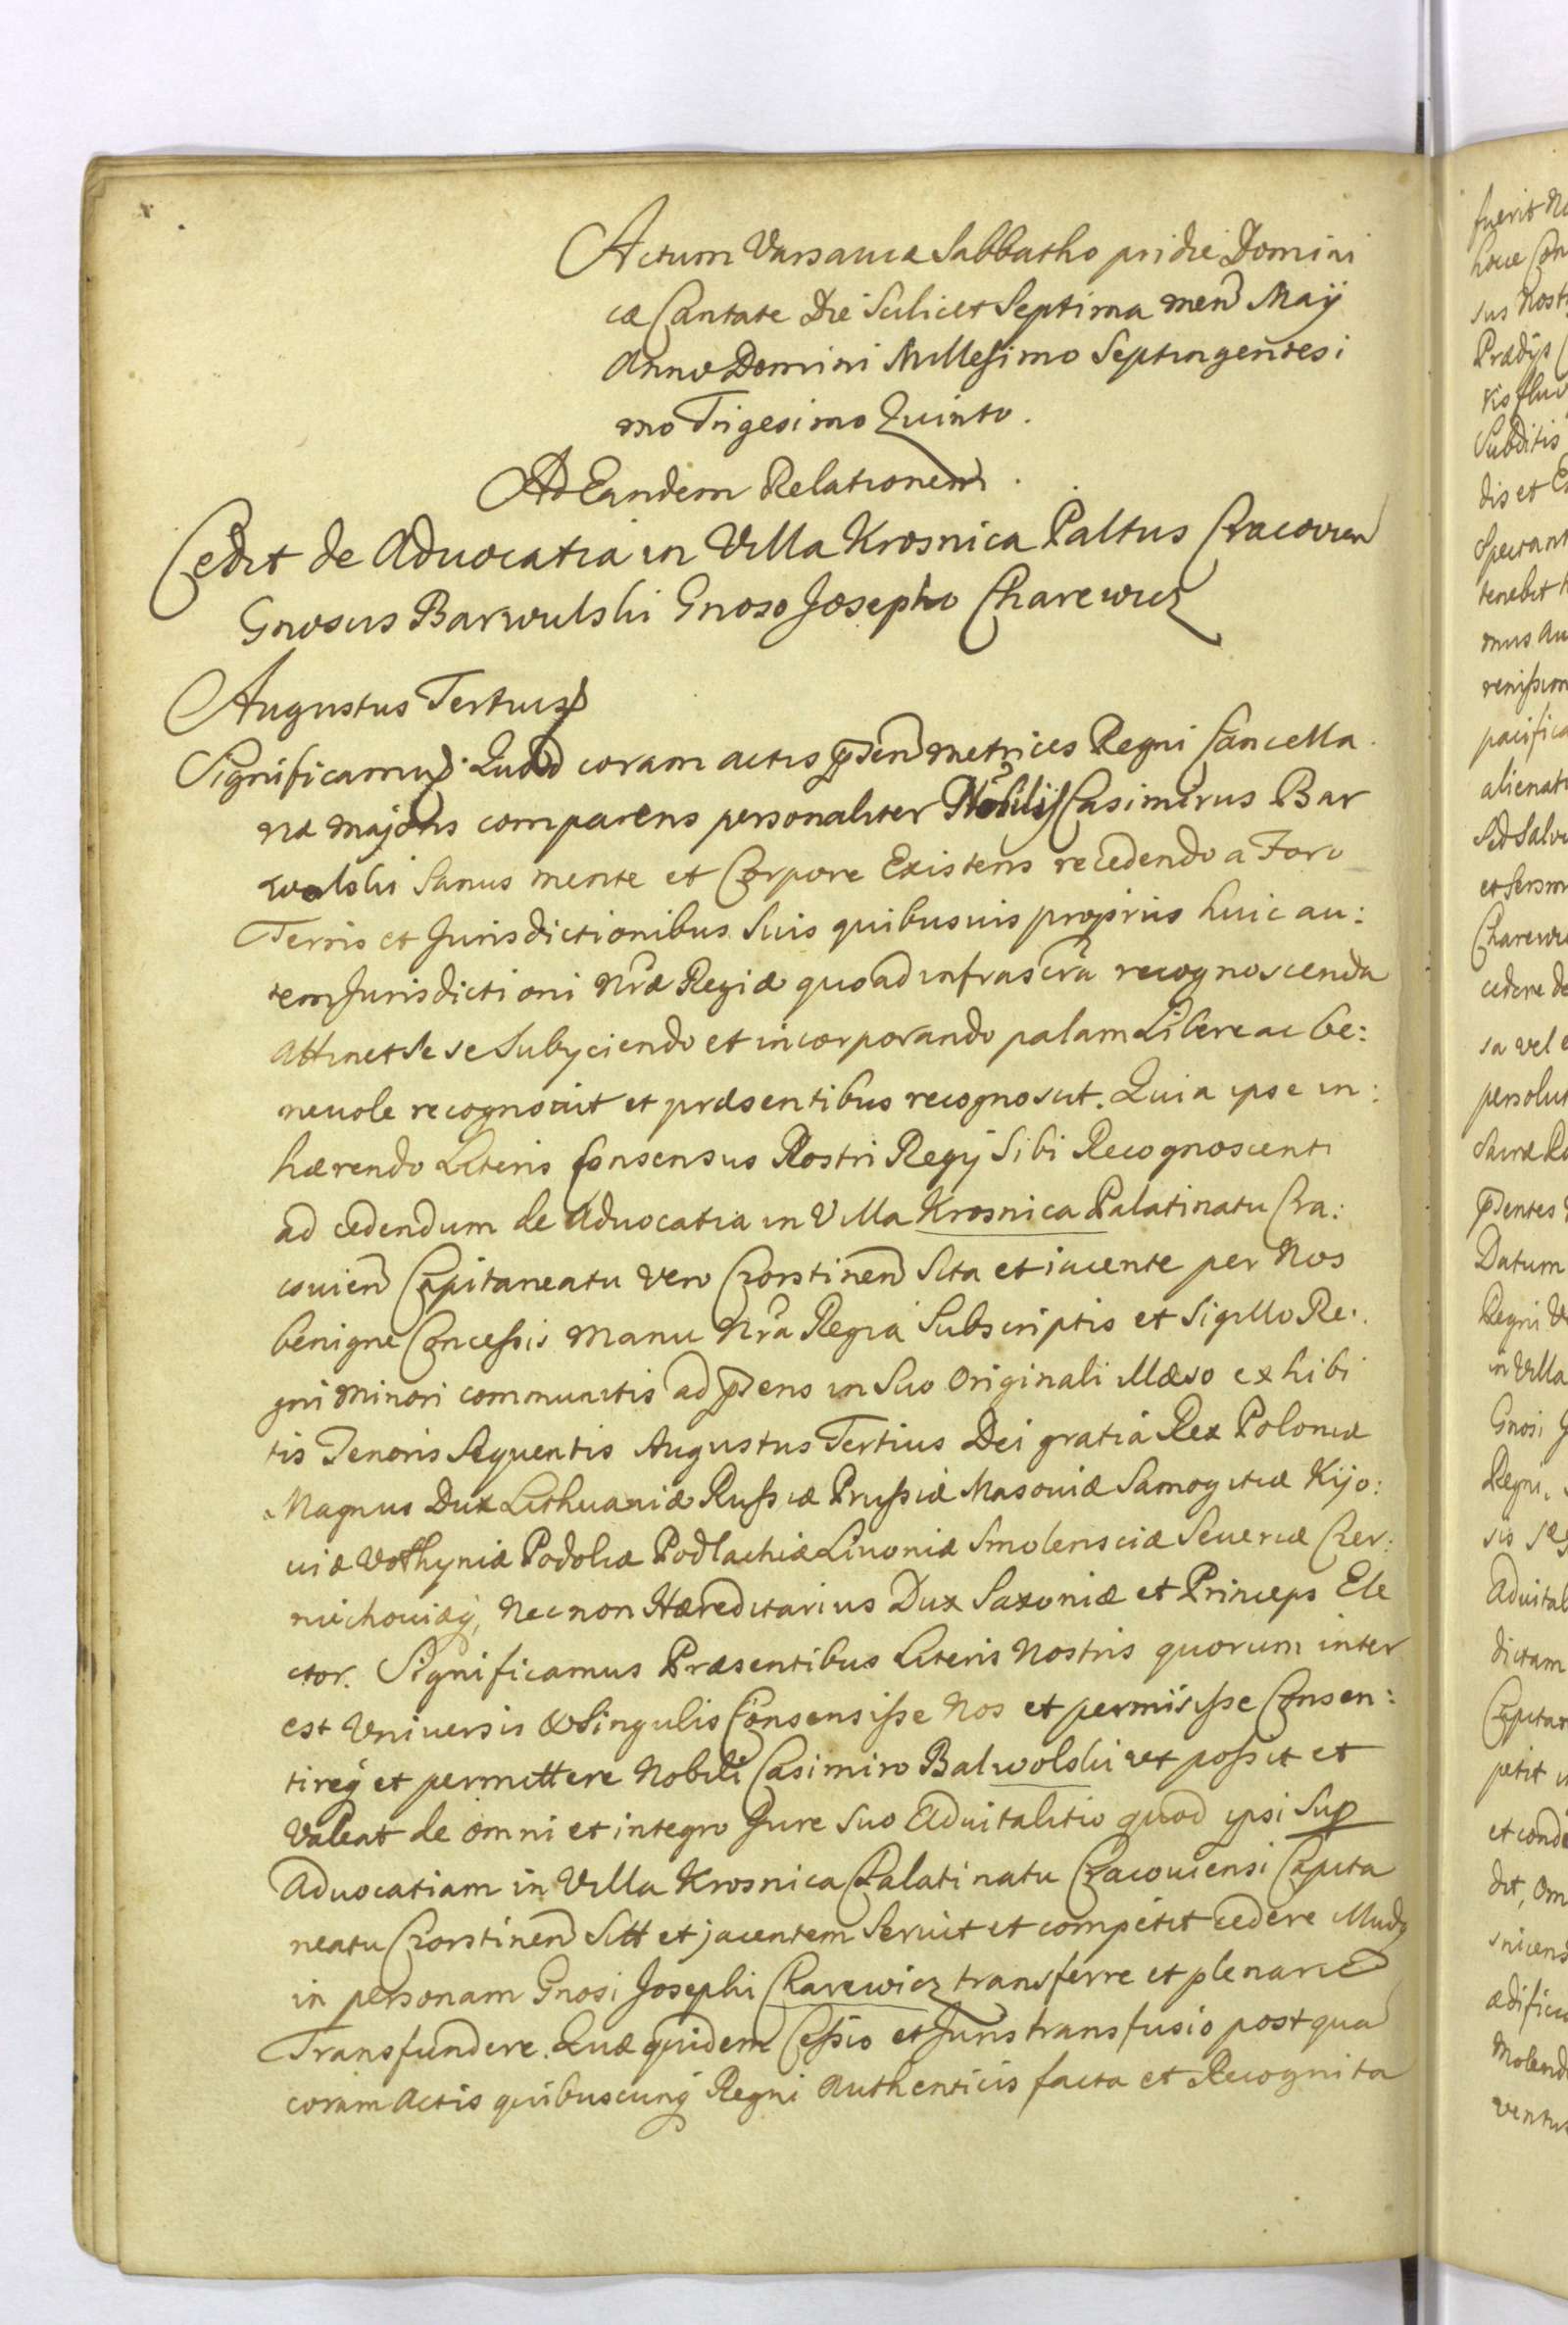 Actum Varsaviæ Sabbatho pridie Domini
cæ Cantate Die Scilicet Septima mens Maÿ
Anno Domini Millesimo Septingentesi
mo Trigesimo Quinto.
Ad Eandem Relationem.
Cedit de Advocatia in Villa Krosnica Paltus Cracovien
Gnosus Barwulski Gnoso Josepho Charewicz
Augustus Tertius
Significamus. Quod coram actis psen metrices Regni Cancella
riæ majoris comparens personaliter Nobilis Casimirus Bar
wolski Sanus mente et Corpore Existens recedendo a Foro
Terris et Jurisdictionibus Suis quibusuis proprijs huic au:
tem Jurisdictioni Nræ Regiæ quoad infrascra recognoscenda
attinet se se Subyciendo et incorporando palam Libere ac be:
neuole recognouit et præsentibus recognoscit. Quia ipse in:
hærendo Literis Consensus Nostri Regÿ Sibi Recognoscenti
ad cedendum de Aduocatia in Villa Krosnica Palatinatu Cra:
couien Capitaneatu vero Czorstinen Sita et iacente per Nos
benigne Concessis manu Nra Regia Subscriptis et Sigillo Re:
gni minori communitis ad psens in Suo Originali illæso exhibi
tis Tenoris Sequentis Augustus Tertius Dei gratia Rex Poloniæ
Magnus Dux Lithuaniæ Russiæ Prussiæ Masoviæ Samogitiæ Kijo:
viæ Volhyniæ Podoliæ Podlachiæ Livoniæ Smolensciæ Seueriæ Czer:
niechoviæq, Necnon Hæreditarius Dux Saxoniæ et Princeps Ele
ctor. Significamus Præsentibus Literis Nostris quorum inter
est Vniuersis & Singulis Consensisse Nos et permisisse Consen:
tireq et permittere Nobili Casimiro Balwolski ut possit et
Valeat de omni et integro Jure Suo Aduitalitio quod ipsi Sup
Aduocatiam in Villa Krosnica Palatinatu Cracouiensi Capita
neatu Czorstinen Sitt et jacentem Seruit et competit cedere illudq
in personam Gnosi Josephi Charewicz transferre et plenarie
Transfundere. Quæ quidem Cessio et Juris transfusio postqua
coram Actis quibuscunq Regni Authenticis facta et Recognita